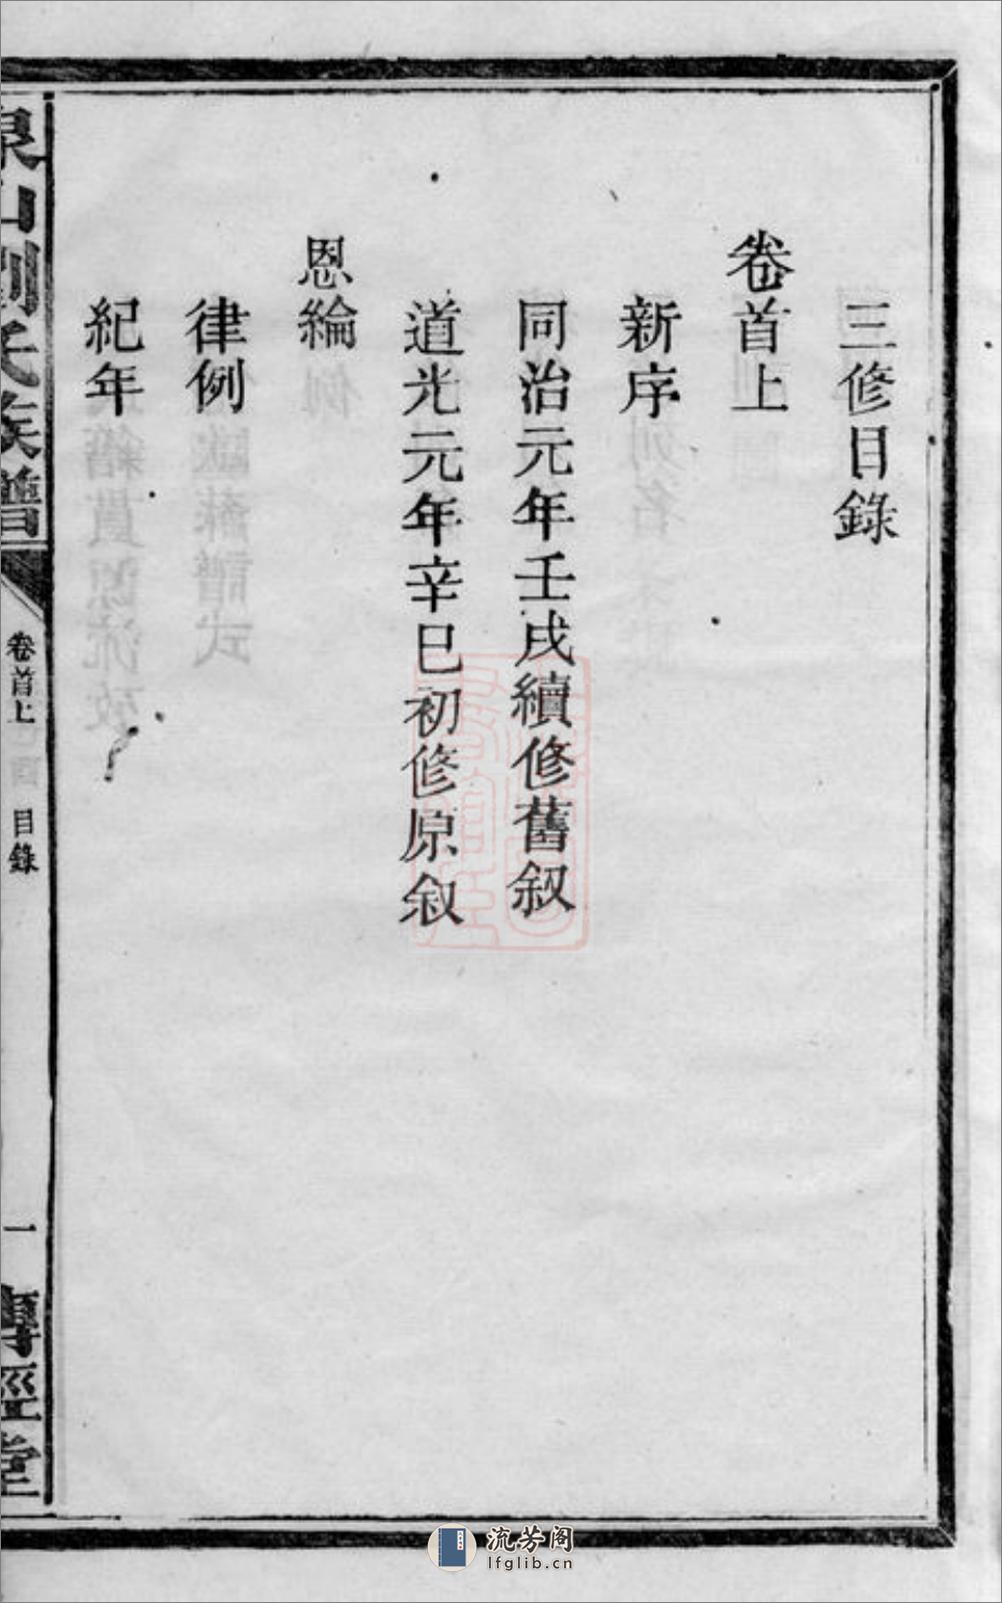 三修目錄
卷首上
新序
同治元年壬戌續修舊叙
道光元年辛巳初修原叙
恩綸
律例
紀年
山劉氏族譜
卷首上
目錄
一
經堂
流芳阁
lfglib.cn